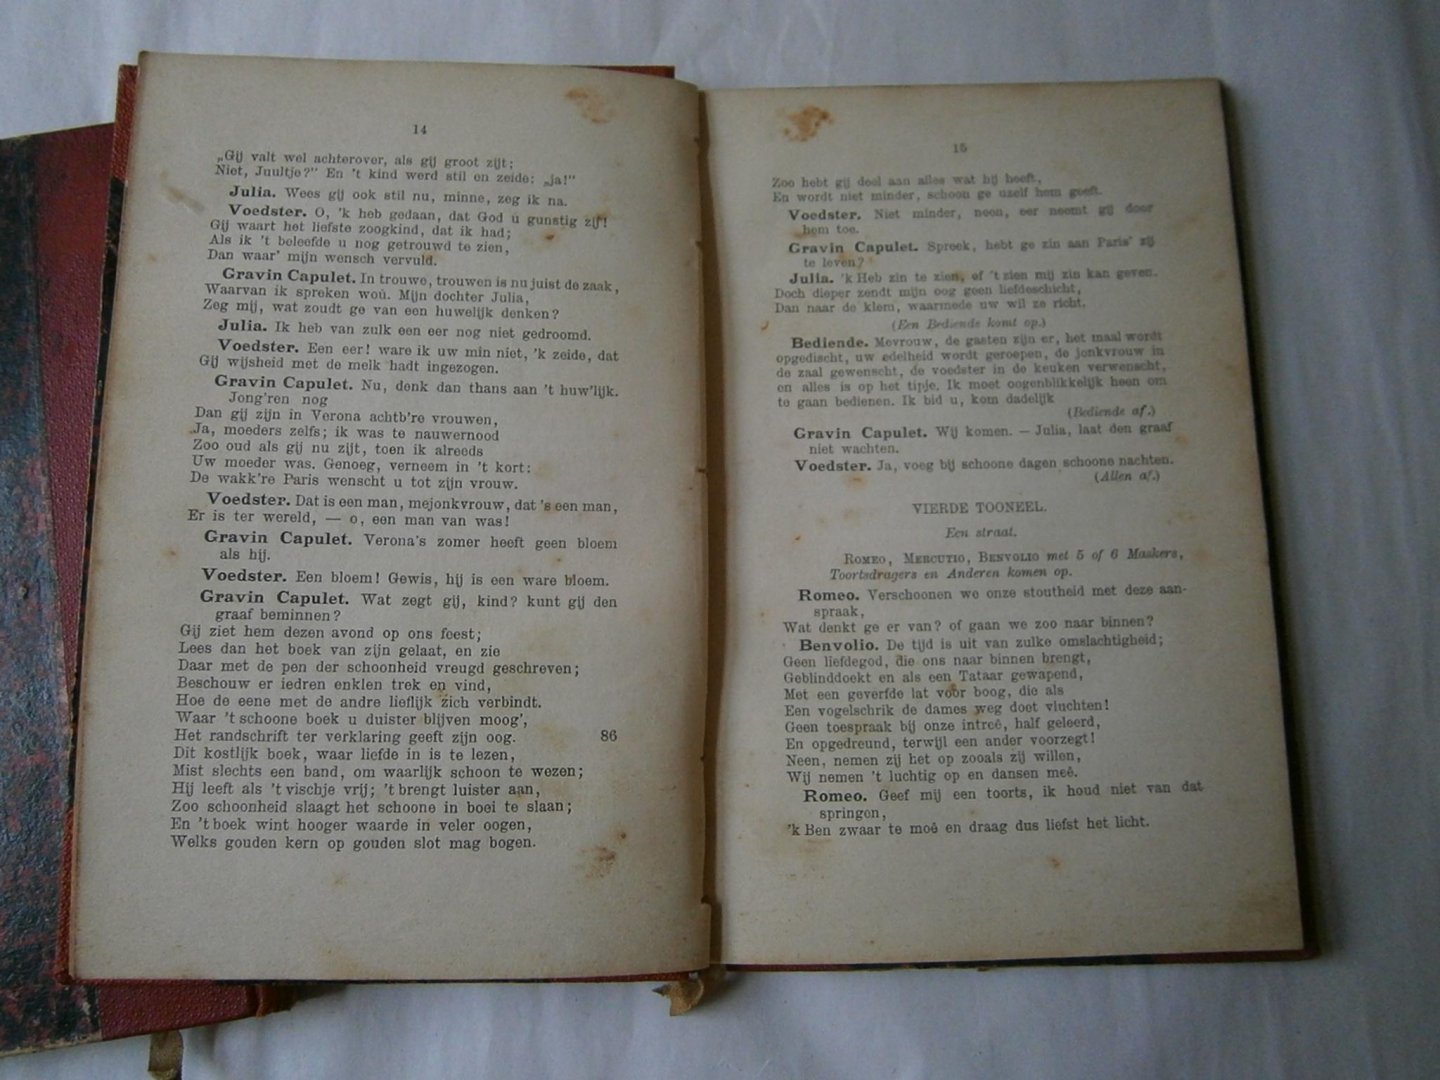 14
„Gij valt wel achterover, als gij groot zijt;
Niet, Juultje?" En 't kind werd stil en zeide: „ja!"
Julia. Wees gij ook stil nu, minne, zeg ik na.
Voedster. O, 'k heb gedaan, dat God u gunstig zij!
Gij waart het liefste zoogkind, dat ik had;
Als ik 't beleefde u nog getrouwd te zien,
Dan waar' mijn wensch vervuld.
Gravin Capulet. In trouwe, trouwen is nu juist de zaak,
Waarvan ik spreken wou. Mijn dochter Julia,
Zeg mij, wat zoudt ge van een huwelijk denken?
Julia. Ik heb van zulk een eer nog niet gedroomd.
Voedster. Een eer! ware ik uw min niet, 'k zeide, dat
Gij wijsheid met de melk hadt ingezogen.
Gravin Capulet. Nu, denk dan thans aan 't huw'lijk.
Jong'ren nog
Dan gij zijn in Verona achtb're vrouwen,
Ja, moeders zelfs; ik was te nauwernood
Zoo oud als gij nu zijt, toen ik alreeds
Uw moeder was. Genoeg, verneem in 't kort:
De wakk're Paris wenscht u tot zijn vrouw.
Voedster. Dat is een man, mejonkvrouw, dat 's een man,
Er is ter wereld, — o, een man van was!
Gravin Capulet. Verona's zomer heeft geen bloem
als hij.
Voedster. Een bloem! Gewis, hij is een ware bloem.
Gravin Capulet. Wat zegt gij, kind? kunt gij den
graaf beminnen?
Gij ziet hem dezen avond op ons feest;
Lees dan het boek van zijn gelaat, en zie
Daar met de pen der schoonheid vreugd geschreven;
Beschouw er iedren enklen trek en vind,
Hoe de eene met de andre lieflijk zich verbindt.
Waar 't schoone boek u duister blijven moog',
Het randschrift ter verklaring geeft zijn oog. 86
Dit kostlijk boek, waar liefde in is te lezen,
Mist slechts een band, om waarlijk schoon te wezen;
Hij leeft als 't vischje vrij; 't brengt luister aan,
Zoo schoonheid slaagt het schoone in boei te slaan;
En 't boek wint hooger waarde in veler oogen,
Welks gouden kern op gouden slot mag bogen.
15
Zoo hebt gij deel aan alles wat hij heeft,
En wordt niet minder, schoon ge uzelf hem geeft.
Voedster. Niet minder, neen, eer neemt gij door
hem toe.
Gravin Capulet. Spreek, hebt ge zin aan Paris' zij
te leven?
Julia. 'k Heb zin te zien, of 't zien mij zin kan geven.
Doch dieper zendt mijn oog geen liefdeschicht,
Dan naar de klem, waarmede uw wil ze richt.
(Een Bediende komt op.)
Bediende. Mevrouw, de gasten zijn er, het maal wordt
opgedischt, uw edelheid wordt geroepen, de jonkvrouw in
de zaal gewenscht, de voedster in de keuken verwenscht,
en alles is op het tipje. Ik moet oogenblikkelijk heen om
te gaan bedienen. Ik bid u, kom dadelijk
(Bediende af.)
Gravin Capulet. Wij komen. — Julia, laat den graaf
niet wachten.
Voedster. Ja, voeg bij schoone dagen schoone nachten.
(Allen af.)
VIERDE TOONEEL.
Een straat.
Romeo, Mercutio, Benvolio met 5 of 6 Maskers,
Toortsdragers en Anderen komen op.
Romeo. Verschoonen we onze stoutheid met deze aan-
spraak,
Wat denkt ge er van? of gaan we zoo naar binnen?
Benvolio. De tijd is uit van zulke omslachtigheid;
Geen liefdegod, die ons naar binnen brengt,
Geblinddoekt en als een Tataar gewapend,
Met een geverfde lat voor boog, die als
Een vogelschrik de dames weg doet vluchten!
Geen toespraak bij onze intreê, half geleerd,
En opgedreund, terwijl een ander voorzegt!
Neen, nemen zij het op zooals zij willen,
Wij nemen 't luchtig op en dansen meê.
Romeo. Geef mij een toorts, ik houd niet van dat
springen,
'k Ben zwaar te moê en draag dus liefst het licht.